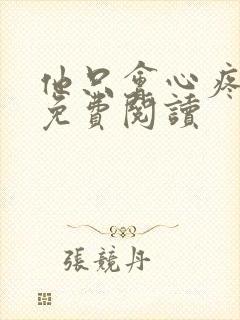 他只會心疼
免費閱讀
張競丹